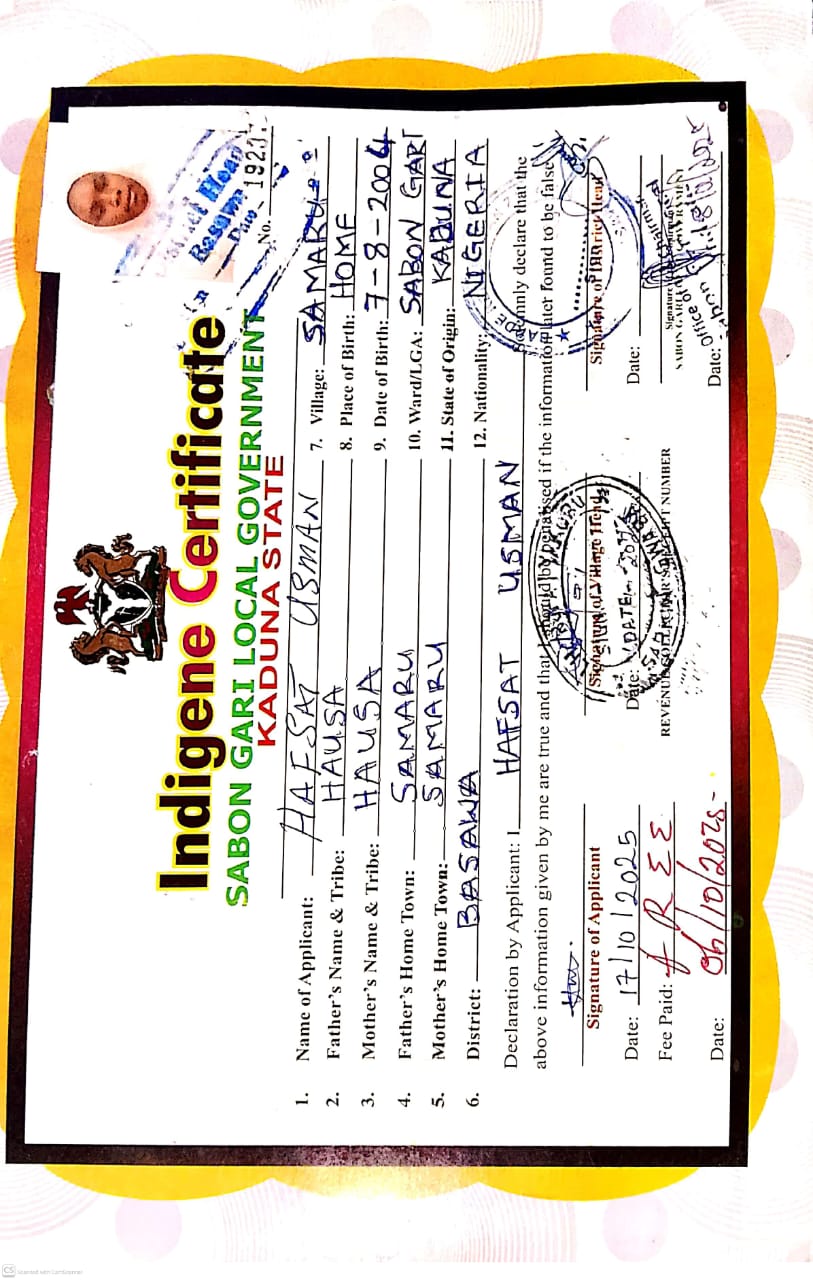 Indigene Certificate
SABON GARI LOCAL GOVERNMENT
KADUNA STATE
District Head
Basawa
No. 1923
1. Name of Applicant: HAFSAT USMAN
2. Father's Name & Tribe: HAUSA
3. Mother's Name & Tribe: HAUSA
4. Father's Home Town: SAMARU
5. Mother's Home Town: SAMARU
6. District: BASAWA
7. Village: SAMARU
8. Place of Birth: HOME
9. Date of Birth: 7-8-2004
10. Ward/LGA: SABON GARI
11. State of Origin: KADUNA
12. Nationality: NIGERIA
Declaration by Applicant: I HAFSAT USMAN solemnly declare that the
above information given by me are true and that I should be penalised if the information later found to be false
Signature of Applicant
Date: 17/10/2025
Fee Paid:
Date: 06/10/2025
Signature of Village Head
Date:
REVENUE COLLECTOR'S RECEIPT NUMBER
Signature of District Head
Date:
Chairman
SABON GARI LOCAL GOVERNMENT
Office of
Date:
CS Scanned with CamScanner